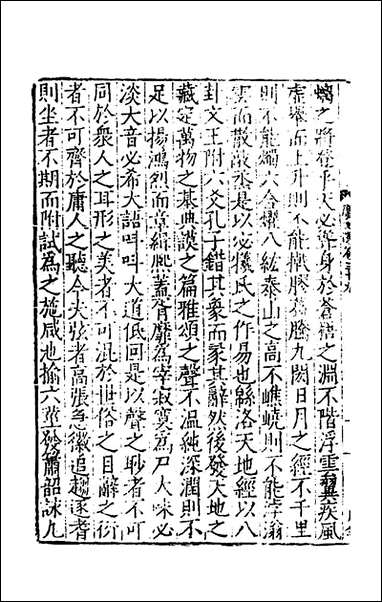 螭之將登乎天必聳身於蒼梧之淵不階浮雲翼疾風
虛舉而上升則不能撠膠葛騰九閎日月之經不千里
則不能燭六合燿八紘泰山之高不嶕嶢則不能浡滃
雲而散歊烝是以宓犧氏之作易也緜洛天地經以八
卦文王附六爻孔子錯其象而彖其辭然後發天地之
藏定萬物之基典謨之篇雅頌之聲不温純深潤則不
足以揚鴻烈而章緝熙蓋胥靡為宰寂寞為尸大味必
淡大音必希大語叫叫大道低回是以聲之眇者不可
同於衆人之耳形之美者不可混於世俗之目辭之衍
者不可齊於庸人之聽今夫弦者高張急徽追趨逐耆
則坐者不期而附試為之施咸池揄六莖發簫韶詠九